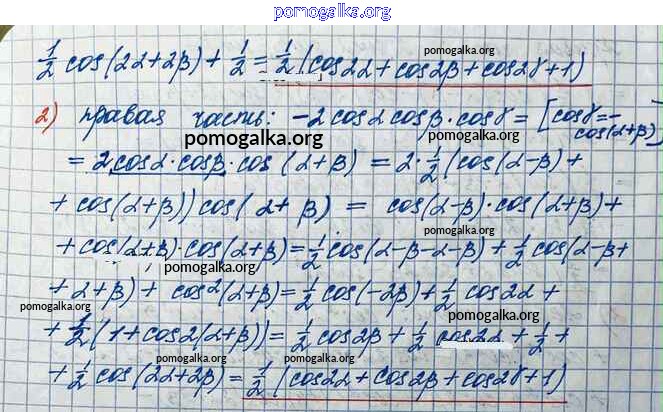 pomogalka.org
1/2 cos(2α+2β) + 1/2 = 1/2 (cos2α + cos2β + cos2γ + 1)
pomogalka.org
pomogalka.org
2) правая часть: -2 cosα cosβ · cosγ = [cosγ = -cos(α+β)]
pomogalka.org
pomogalka.org
= 2 cosα · cosβ · cos(α+β) = 2 · 1/2 (cos(α-β) +
+ cos(α+β)) cos(α+β) = cos(α-β) · cos(α+β) +
pomogalka.org
+ cos(α+β) · cos(α+β) = 1/2 cos(α-β-α-β) + 1/2 cos(α-β+
pomogalka.org
+ α+β) + cos²(α+β) = 1/2 cos(-2β) + 1/2 cos2α +
pomogalka.org
pomogalka.org
+ 1/2 (1 + cos2(α+β)) = 1/2 cos2β + 1/2 cos2α + 1/2 +
pomogalka.org
pomogalka.org
+ 1/2 cos(2α+2β) = 1/2 (cos2α + cos2β + cos2γ + 1)
pomogalka.org